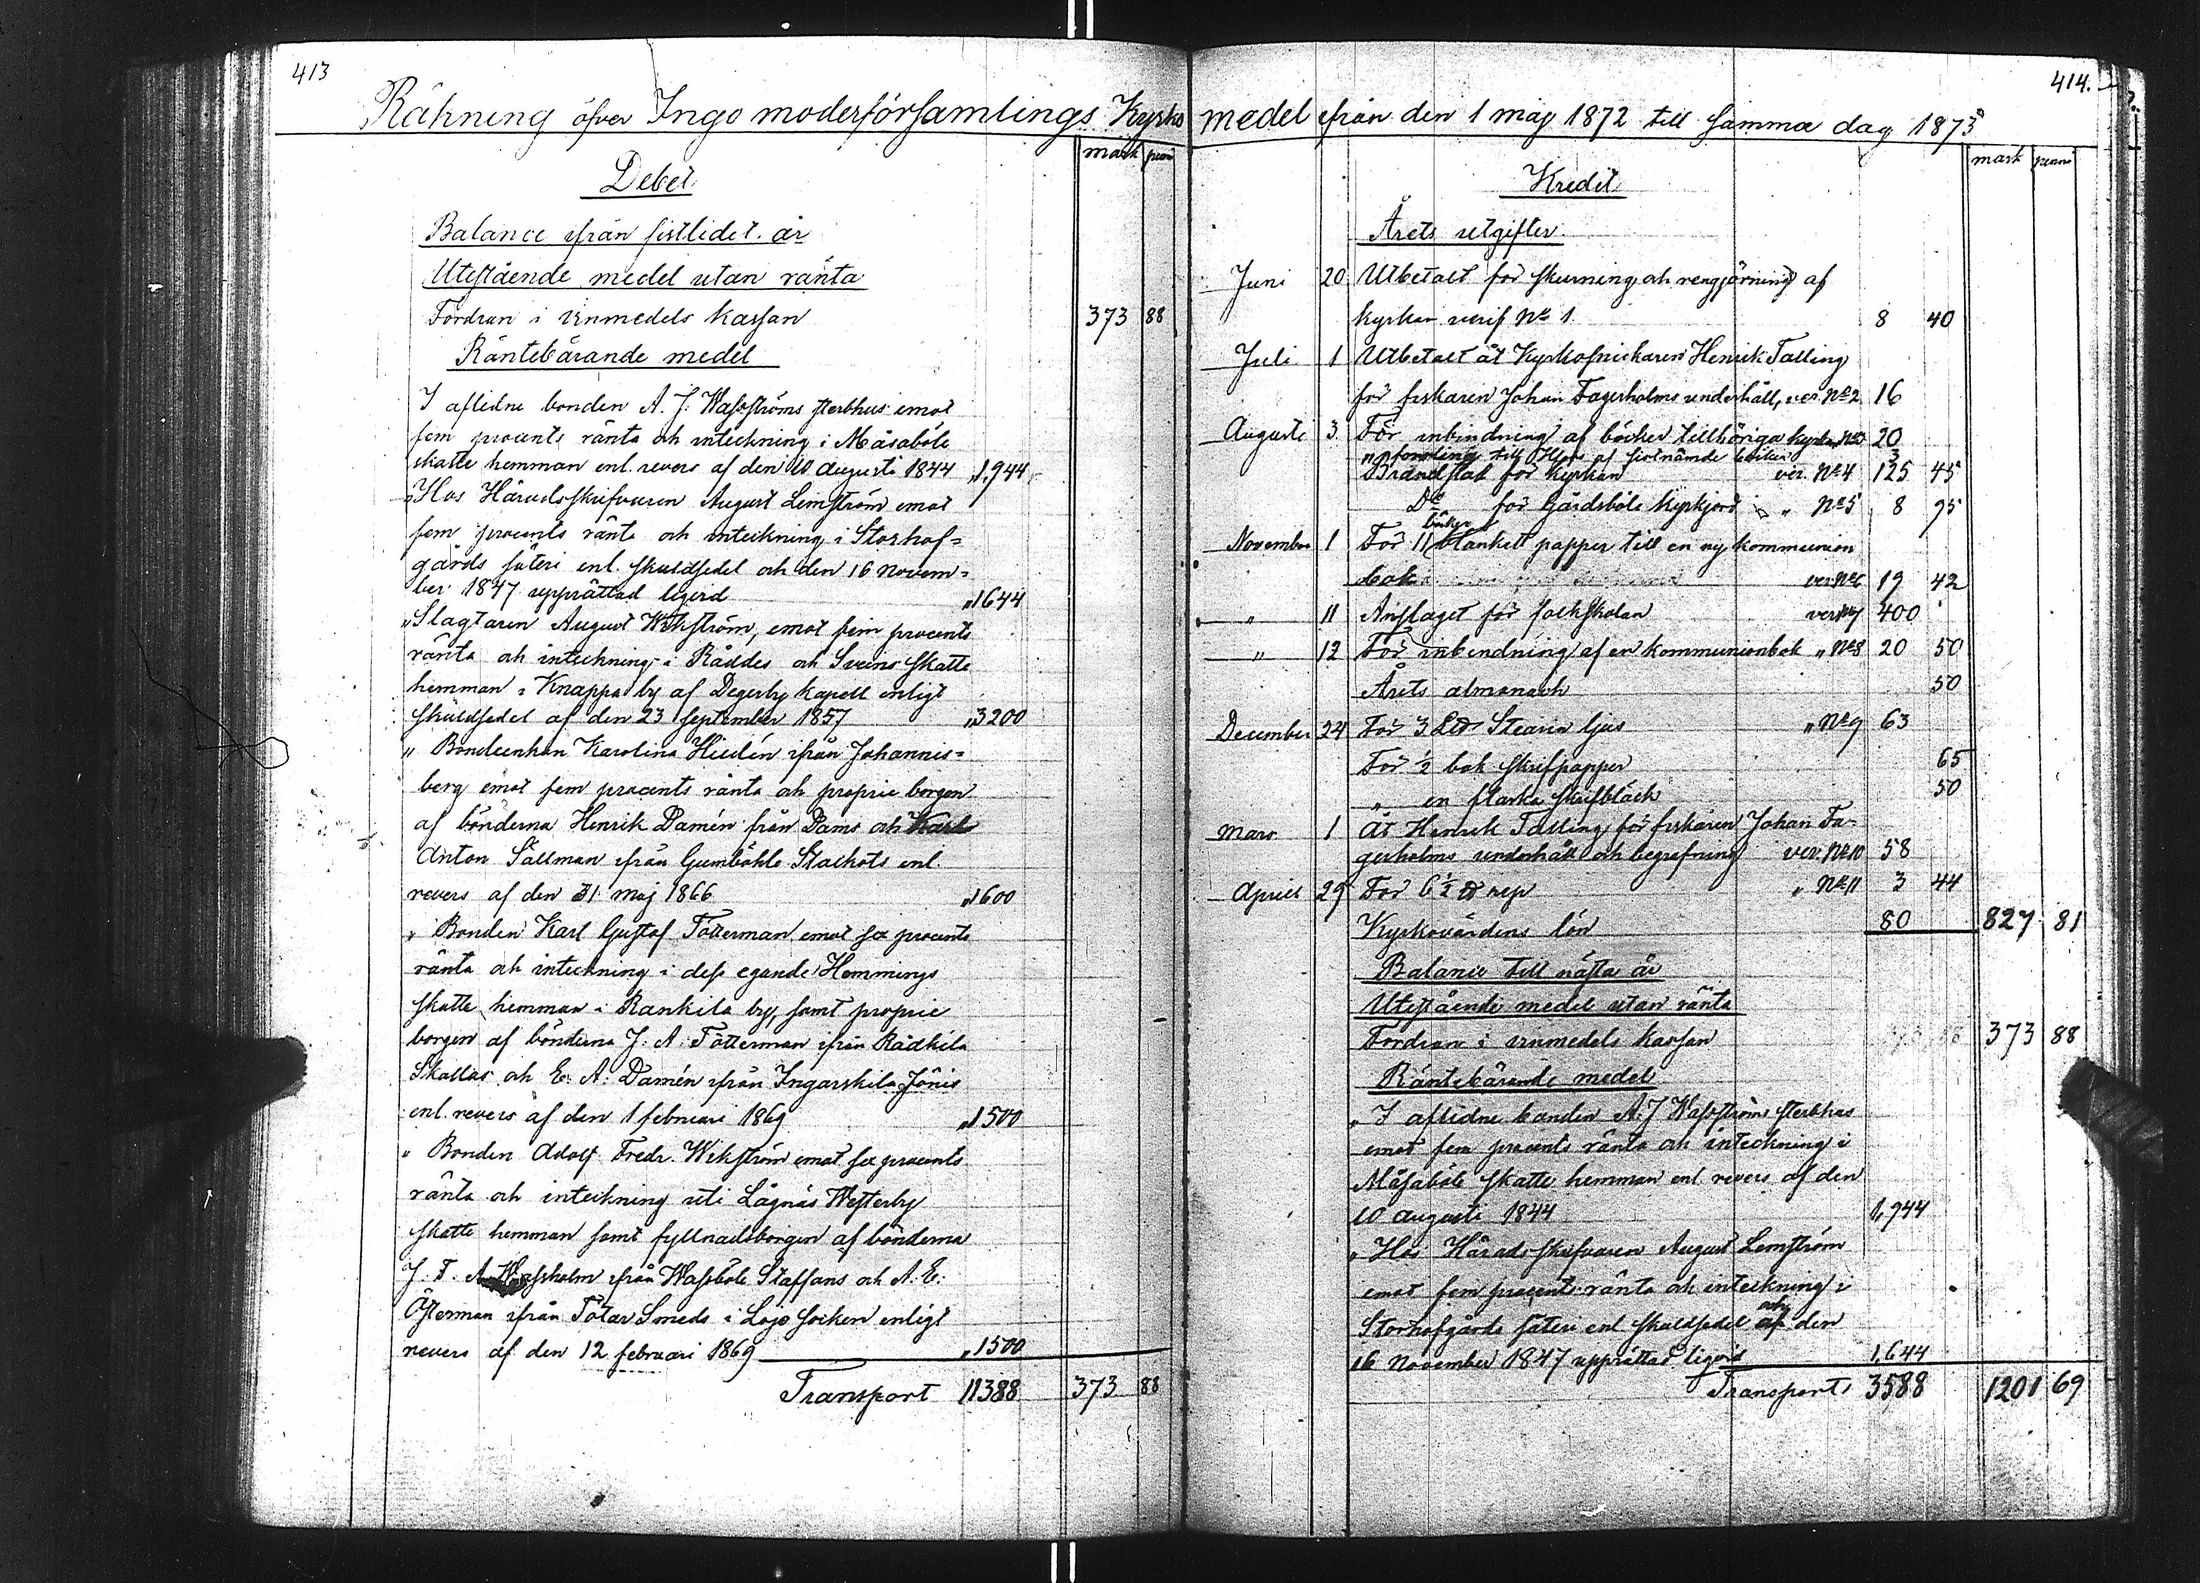 413
Räkning öfver Ingo moderförsamlings Kyrko
mark penni
Debet
Balance ifrån sistlidet år
Utestående medel utan ränta
Fordran i vinmedels kassan 373 88
Räntebärande medel
I aflidne bonden A. J. Wassströms sterbhus emot
fem procents ränta och inteckning i Måsaböle
skatte hemman enl. revers af den 10 augusti 1844 „1,944
„Hos Häradsskrifvaren August Lemström emot
fem procents ränta och inteckning i Storhof=
gårds säteri enl. skuldsedel och den 16 Novem=
ber 1847 upprättad ligerd „1644
„Slagtaren August Wikström, emot fem procents
ränta och inteckning i Råddes och Sveins skatte
hemman i Knappa by af Degerby kapell enligt
skuldsedel af den 23 september 1857 „3200
„ Bondeenkan Karolina Hildén ifrån Johannis=
berg emot fem procents ränta och proprie borgen
af bönderna Henrik Damén från Dams och Karl
Anton Sällman ifrån Gumböhle Stackots enl.
revers af den 31 maj 1866 „1600
„ Bonden Karl Gustaf Tötterman emot sex procents
ränta och inteckning i dess egande Hemmings
skatte hemman i Rankila by, samt proprie
borgen af bönderna J. A. Tötterman ifrån Rådkila
Skallas och E. A. Damén ifrån Ingarskila Jönis
enl. revers af den 1 februari 1869 „1500
„ Bonden Adolf Fredr. Wikström emot sex procents
ränta och inteckning uti Lågnäs Westerby
skatte hemman samt fyllnadsborgen af bönderna
J. F. A. ifrån Wassböle Staffans och A. E.
Österman ifrån Tötar Smeds i Lojo socken enligt
revers af den 12 februari 1869 „1500
Transport 11388 373 88
414.
medel ifrån den 1 maj 1872 till samma dag 1873
mark penni
Kredit
Årets utgifter
Juni 20 Utbetalt för skurning och rengjörning af
kyrkan verif No 1 8 40
Juli 1 Utbetalt åt Kyrkosnickaren Henrik Talling
för fiskaren Johan Fagerholms underhåll, ver. No 2 16
Augusti 3 För inbindning af böcker tillhöriga kyrkan No 3 20
„ forsling till Hfors af förenämde böcker 3
Brandstod för kyrkan ver. No 4 125 45
Do för Gårdsböle kyrkjord „ No 5 8 95
böcker
November 1 För 11 blankett papper till en ny kommunion
bok ver No 6 19 42
„ 11 Anslaget för folkskolan ver No 7 400
„ 12 För inbindning af en kommunionbok „ No 8 20 50
Årets almanach 50
December 24 För 3 L℔ Stearin ljus „ No 9 63
För ½ bok skrifpapper 65
„ en flaska skrifbläck 50
Mars 1 Åt Henrik Talling för fiskaren Johan Fa-
gerholms underhåll och begrafning ver. No 10 58
April 29 För 6 ½ ℔ rep „ No 11 3 44
Kyrkovärdens lön 80 827 81
Balance till nästa år
Utestående medel utan ränta
Fordran i vinmedels kassan 373 88
Räntebärande medel
„ I aflidne bonden A. J Wassströms sterbhus
emot fem procents ränta och inteckning i
Måsaböle skatte hemman enl revers af den
10 augusti 1844 1,944
„ Hos Häradsskrifvaren August Lemström
emot fem procents ränta och inteckning i
Storhofgårds säteri enl skuldsedel och den
16 November 1847 upprättad ligerd 1,644
Transport 3588 1201 69